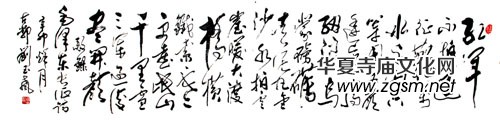 红军
不怕远
征难万
水千山只
等闲五岭
逶迤腾细
浪乌
蒙磅礴
走泥丸金
沙水拍
云崖暖大渡
桥横
铁索寒
更喜岷山
千里雪
三军过后
尽开颜
毛泽东长征诗
华夏寺庙文化网
www.zgsm.net